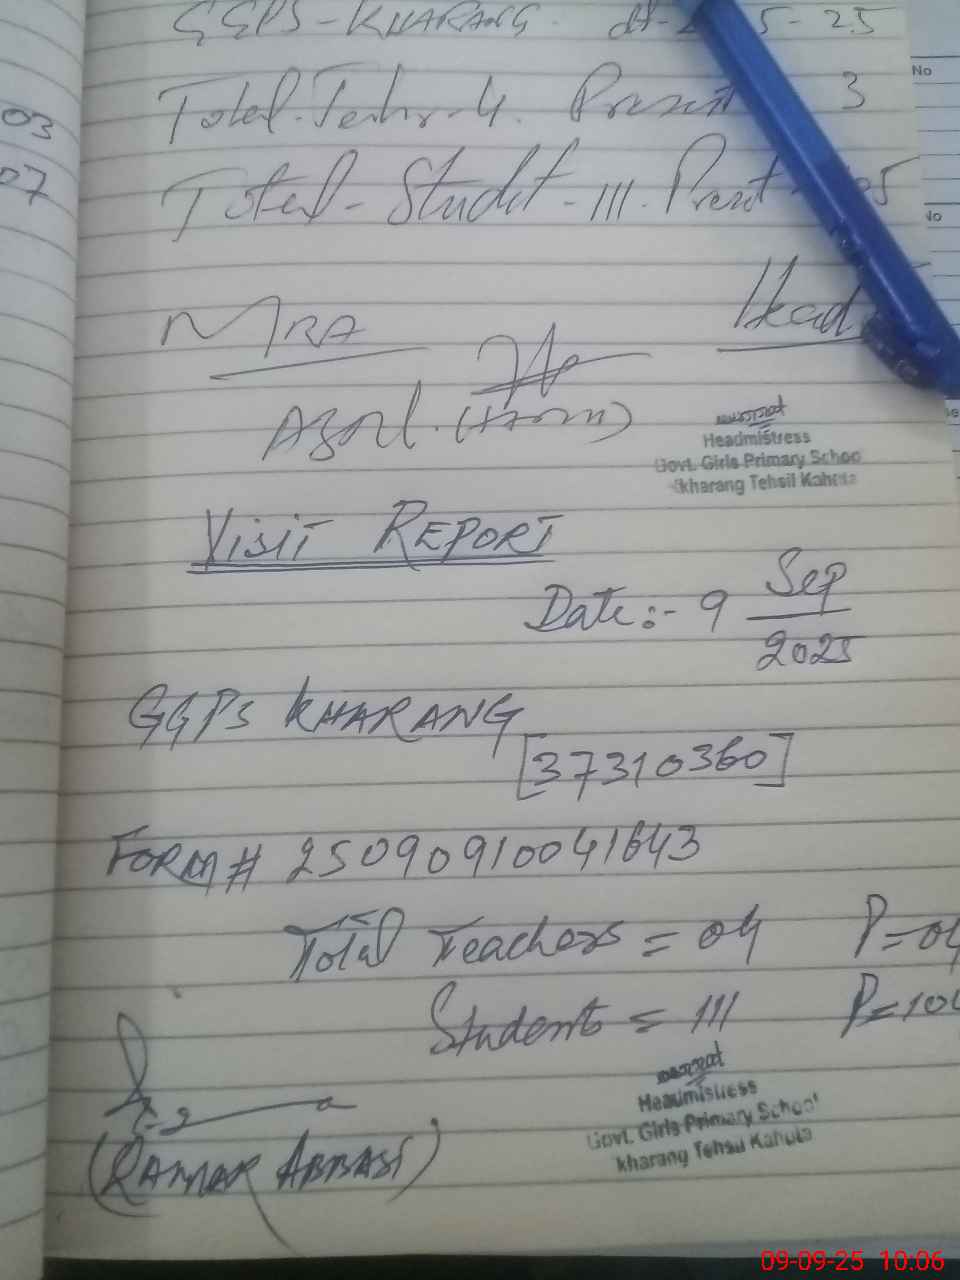 03
07
GGPS - KHARANG. dt- 5-25
Total. Teachr - 4. Present 3
Total - Studet - 111. Presnt - 05
MRA
Head
Headmistress
Govt. Girls Primary Schoo
kharang Tehsil Kahuta
VISIT REPORT
Date:- 9 Sep
2025
GGPS KHARANG
[37310360]
FORM # 25090910041643
Total Teachers = 04 P=04
Students = 111 P=104
Headmistress
Govt. Girls Primary School
kharang Tehsil Kahuta
ABBASI)
No
No
09-09-25 10:06